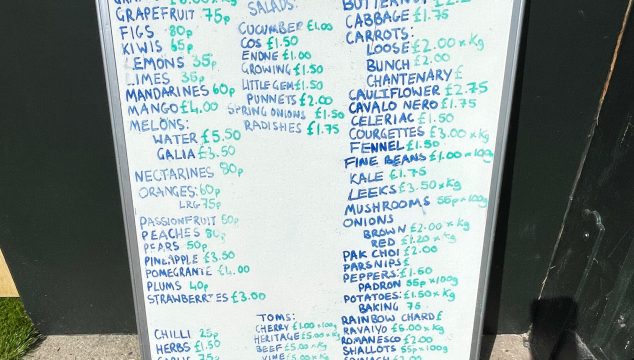 GRAPEFRUIT 75p
FIGS 80p
KIWIS 65p
LEMONS 35p
LIMES 35p
MANDARINES 60p
MANGO £4.00
MELONS:
WATER £5.50
GALIA £3.50
NECTARINES 80p
ORANGES: 60p
LRG 75p
PASSIONFRUIT 50p
PEACHES 80p
PEARS 50p
PINEAPPLE £3.50
POMEGRANTE £4.00
PLUMS 40p
STRAWBERRIES £3.00
CHILLI 25p
HERBS £1.50
75p
SALADS:
CUCUMBER £1.00
COS £1.50
ENDNE £1.00
GROWING £1.50
LITTLE GEM £1.50
PUNNETS £2.00
SPRING ONIONS £1.50
RADISHES £1.75
TOMS:
CHERRY £1.00 x 100g
HERITAGE £5.00 x Kg
BEEF £5.00 x Kg
VINE
BUTTERNUT
CABBAGE £1.75
CARROTS:
LOOSE £2.00 x Kg
BUNCH £2.00
CHANTENARY £
CAULIFLOWER £2.75
CAVALO NERO £1.75
CELERIAC £1.50
COURGETTES £3.00 x Kg
FENNEL £1.50
FINE BEANS £1.00 x 100g
KALE £1.75
LEEKS £3.50 x Kg
MUSHROOMS 55p x 100g
ONIONS
BROWN £2.00 x Kg
RED £1.20 x Kg
PAK CHOI £2.00
PARSNIPS £
PEPPERS: £1.60
PADRON 55p x 100g
POTATOES: £1.50 x Kg
BAKING 75
RAINBOW CHARD £
RAVAIYO £6.00 x Kg
ROMANESCO £2.00
SHALLOTS 55p x 100g